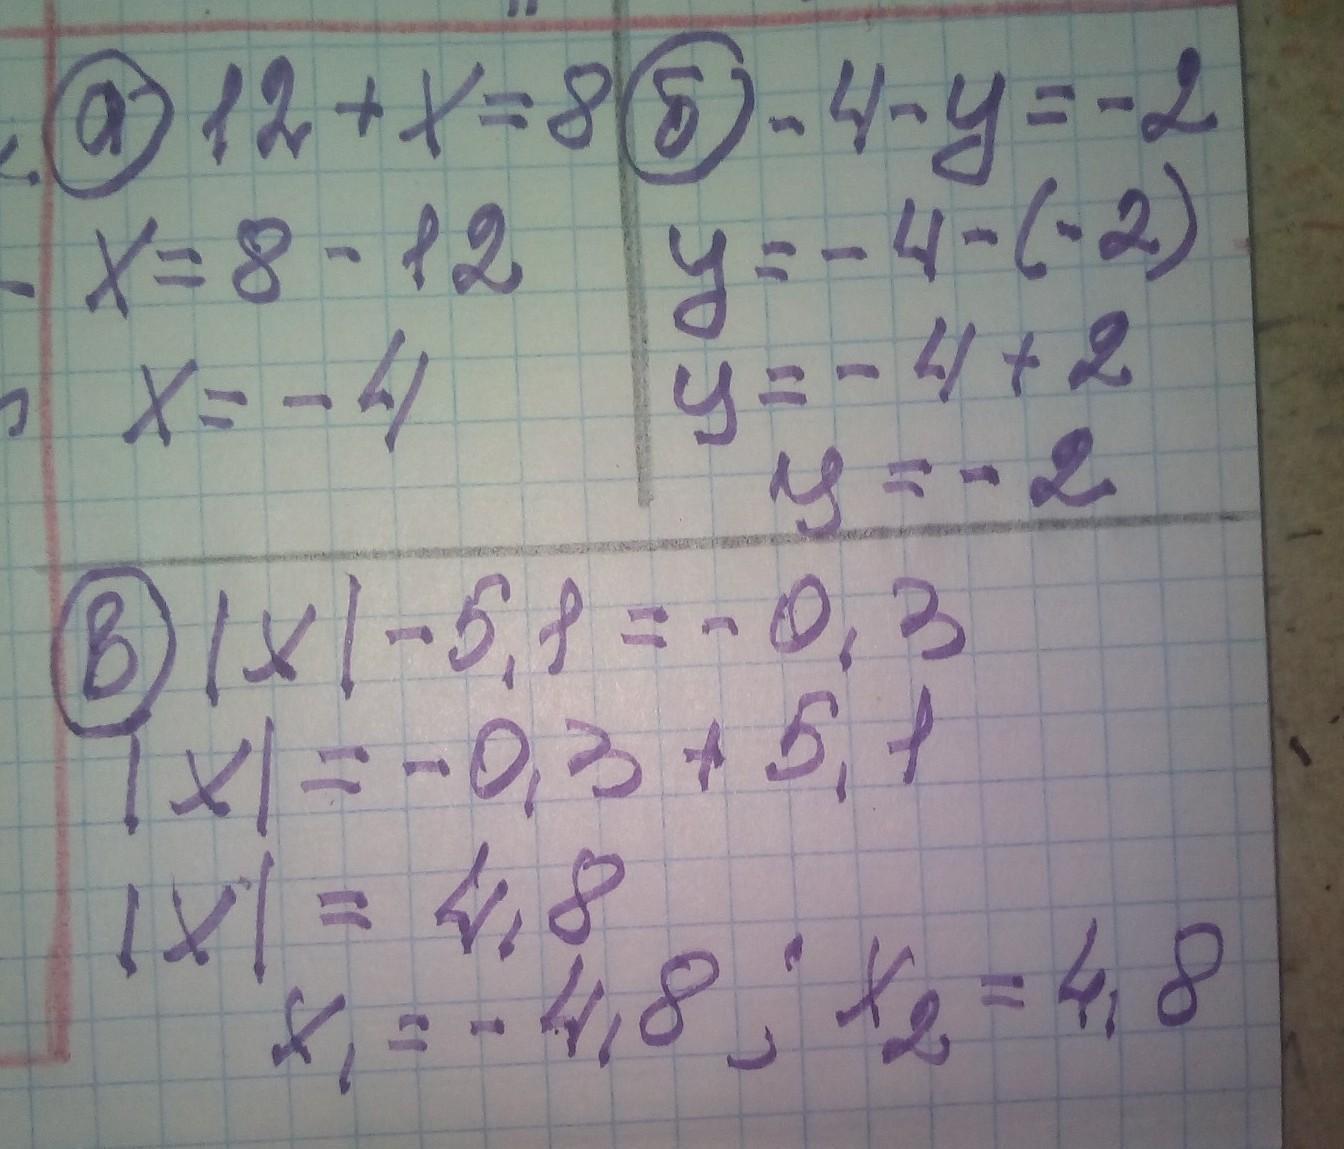 а) 12 + x = 8
x = 8 - 12
x = - 4
б) - 4 - y = - 2
y = - 4 - (- 2)
y = - 4 + 2
y = - 2
в) |x| - 5,1 = - 0,3
|x| = - 0,3 + 5,1
|x| = 4,8
x₁ = - 4,8 ; x₂ = 4,8